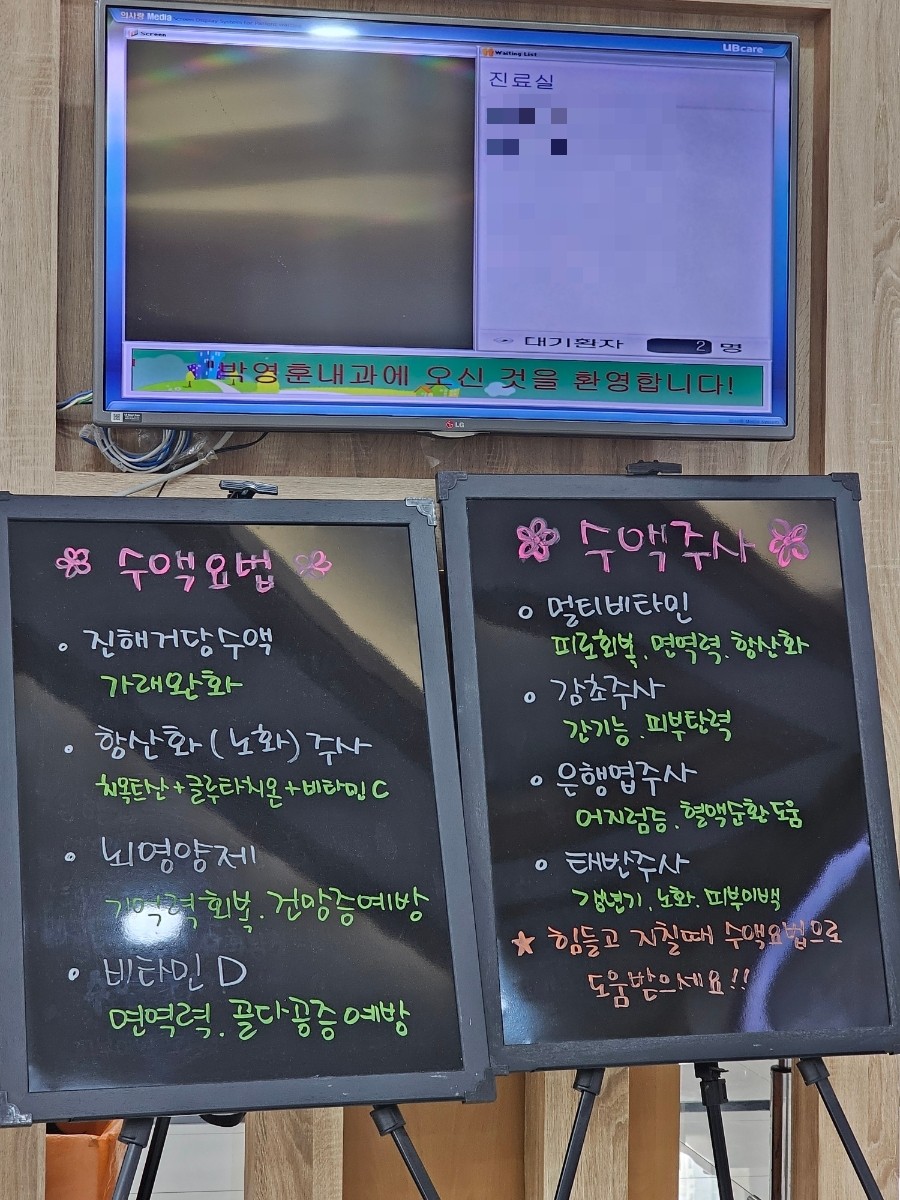 의사랑 Media
Screen
Waiting List
UBcare
진료실
대기환자 2 명
"박영훈내과에 오신 것을 환영합니다!
LG
수액요법
진해거담수액
가래완화
항산화 (노화) 주사
치옥트산+글루타치온+비타민 C
뇌영양제
기억력회복. 건망증예방
비타민 D
면역력. 골다공증예방
수액주사
멀티비타민
피로회복. 면역력. 항산화
감초주사
간기능. 피부탄력
은행엽주사
어지럼증. 혈액순환도움
태반주사
갱년기. 노화. 피부미백
★ 힘들고 지칠때 수액요법으로
도움받으세요!!